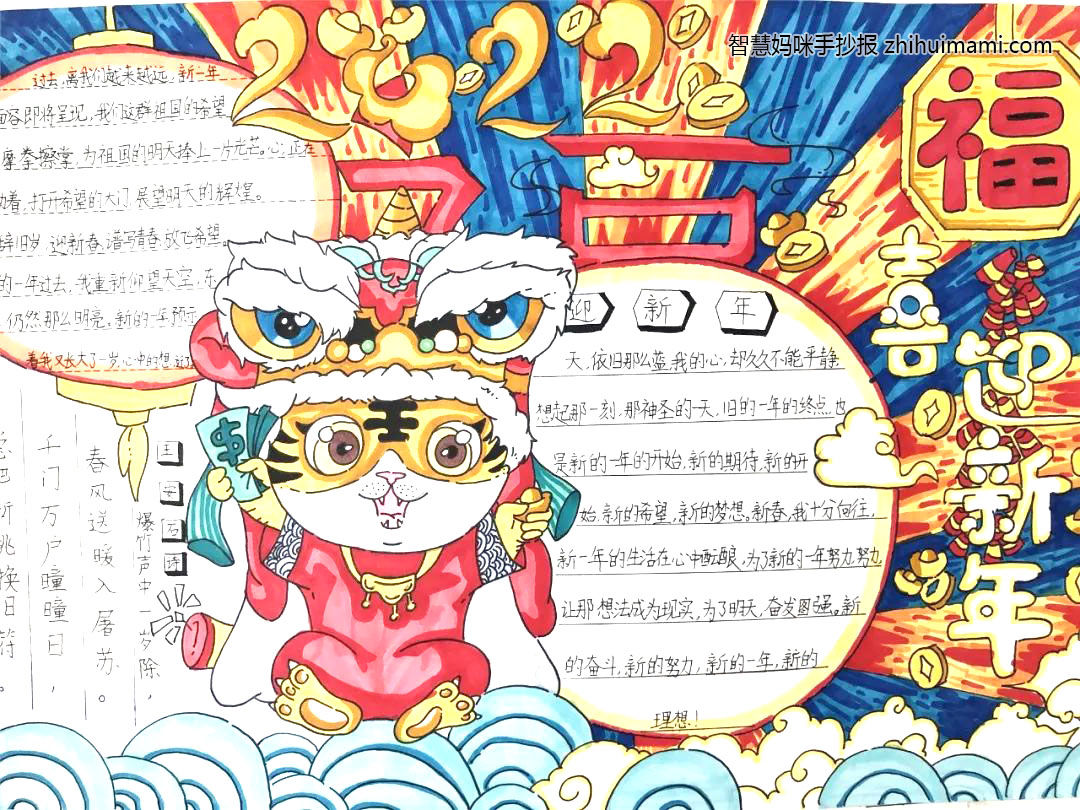 智慧妈咪手抄报 zhihuimami.com
2022
福
过去,离我们越来越远,新一年
容即将呈现,我们这群祖国的希望,
摩拳擦掌,为祖国的明天捧上一片光芒。心,正在
着,打开希望的大门,展望明天的辉煌。
辞旧岁,迎新春,谱写青春,放飞希望。
的一年过去,我重新仰望天空,在
,仍然那么明亮。新的一年预示
着我又长大了一岁,心中的想
喜迎新年
迎新年
天,依旧那么蓝,我的心,却久久不能平静
想起那一刻,那神圣的一天,旧的一年的终点,也
是新的一年的开始,新的期待,新的开
始,新的希望,新的梦想。新春,我十分向往,
新一年的生活在心中酝酿,为了新的一年努力,努力
让那想法成为现实,为了明天,奋发图强。新
的奋斗,新的努力,新的一年,新的
理想!
王
王安石诗
爆竹声中一岁除,
春风送暖入屠苏。
千门万户曈曈日,
把新桃换旧符。
$